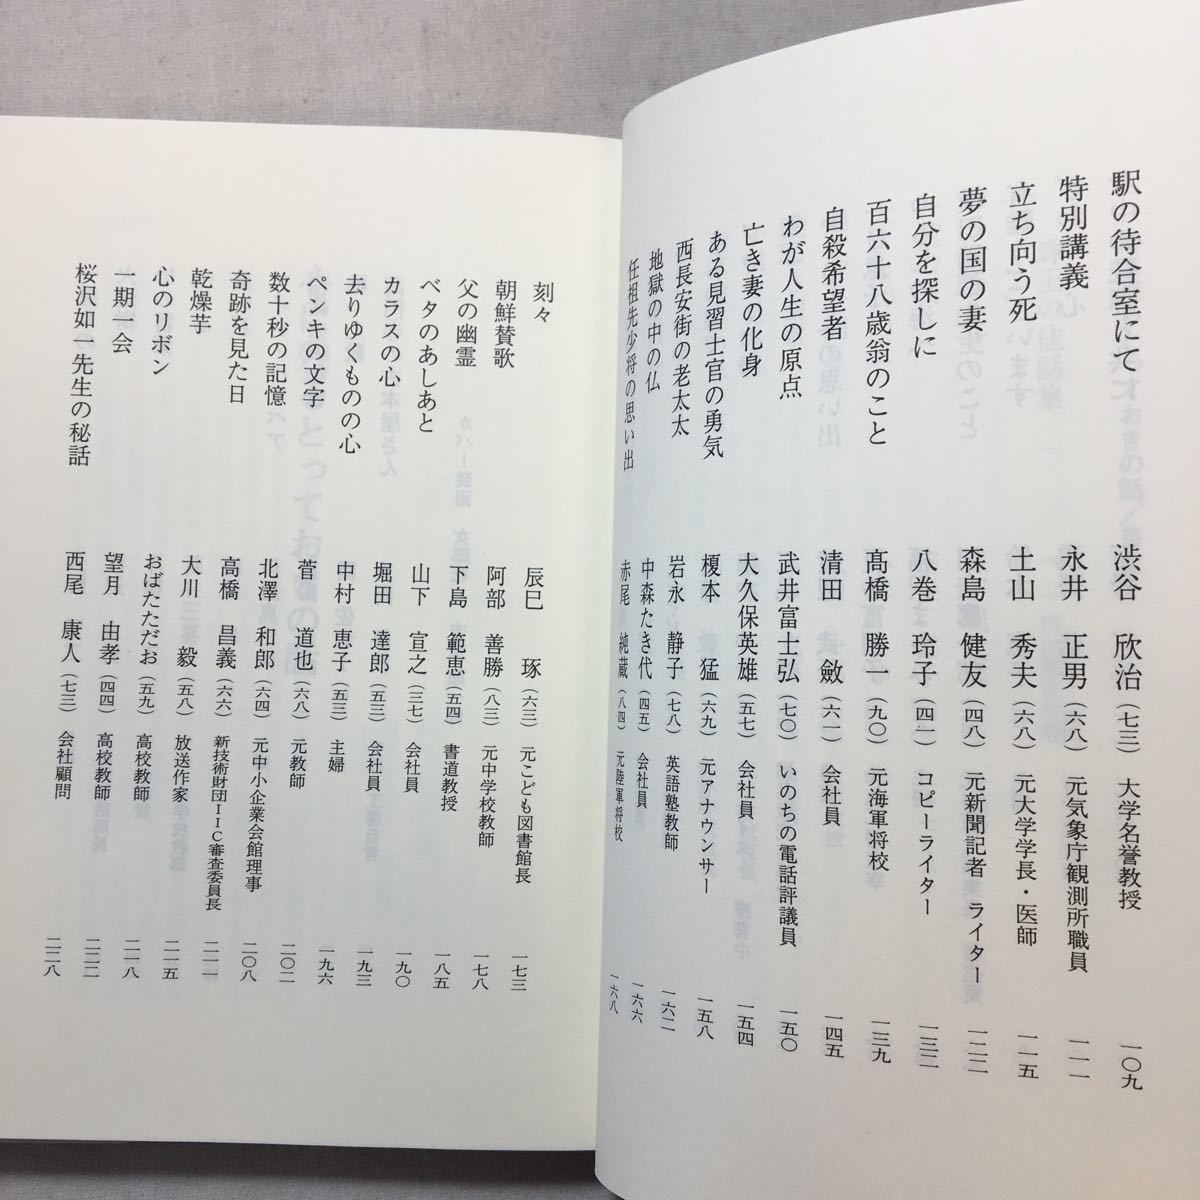 駅の待合室にて 渋谷 欣治（七三） 大学名誉教授 一〇九
特別講義 永井 正男（六八） 元気象庁観測所職員 一一一
立ち向う死 土山 秀夫（六八） 元大学学長・医師 一一五
夢の国の妻 森島 健友（四八） 元新聞記者 ライター 一二二
自分を探しに 八巻 玲子（四一） コピーライター 一三二
百六十八歳翁のこと 髙橋 勝一（九〇） 元海軍将校 一三九
自殺希望者 清田 斂（六一） 会社員 一四五
わが人生の原点 武井富士弘（七〇） いのちの電話評議員 一五〇
亡き妻の化身 大久保英雄（五七） 会社員 一五四
ある見習士官の勇気 榎本 猛（六九） 元アナウンサー 一五八
西長安街の老太太 岩永 静子（七八） 英語塾教師 一六二
地獄の中の仏 中森たき代（四五） 会社員 一六六
任祖先少将の思い出 赤尾 純蔵（八四） 元陸軍将校 一六八
刻々 辰巳 琢（六三） 元こども図書館長 一七三
朝鮮賛歌 阿部 善勝（八三） 元中学校教師 一七八
父の幽霊 下島 範恵（五四） 書道教授 一八五
ベタのあしあと 山下 宣之（三七） 会社員 一九〇
カラスの心 堀田 達郎（五三） 会社員 一九三
去りゆくものの心 中村 恵子（五三） 主婦 一九六
ペンキの文字 菅 道也（六八） 元教師 二〇二
数十秒の記憶 北澤 和郎（六四） 元中小企業会館理事 二〇八
奇跡を見た日 高橋 昌義（六六） 新技術財団ＩＩＣ審査委員長 二一一
乾燥芋 大川 毅（五八） 放送作家 二一五
心のリボン おばたただお（五九） 高校教師 二一八
一期一会 望月 由孝（四四） 高校教師 二二二
桜沢如一先生の秘話 西尾 康人（七三） 会社顧問 二二八